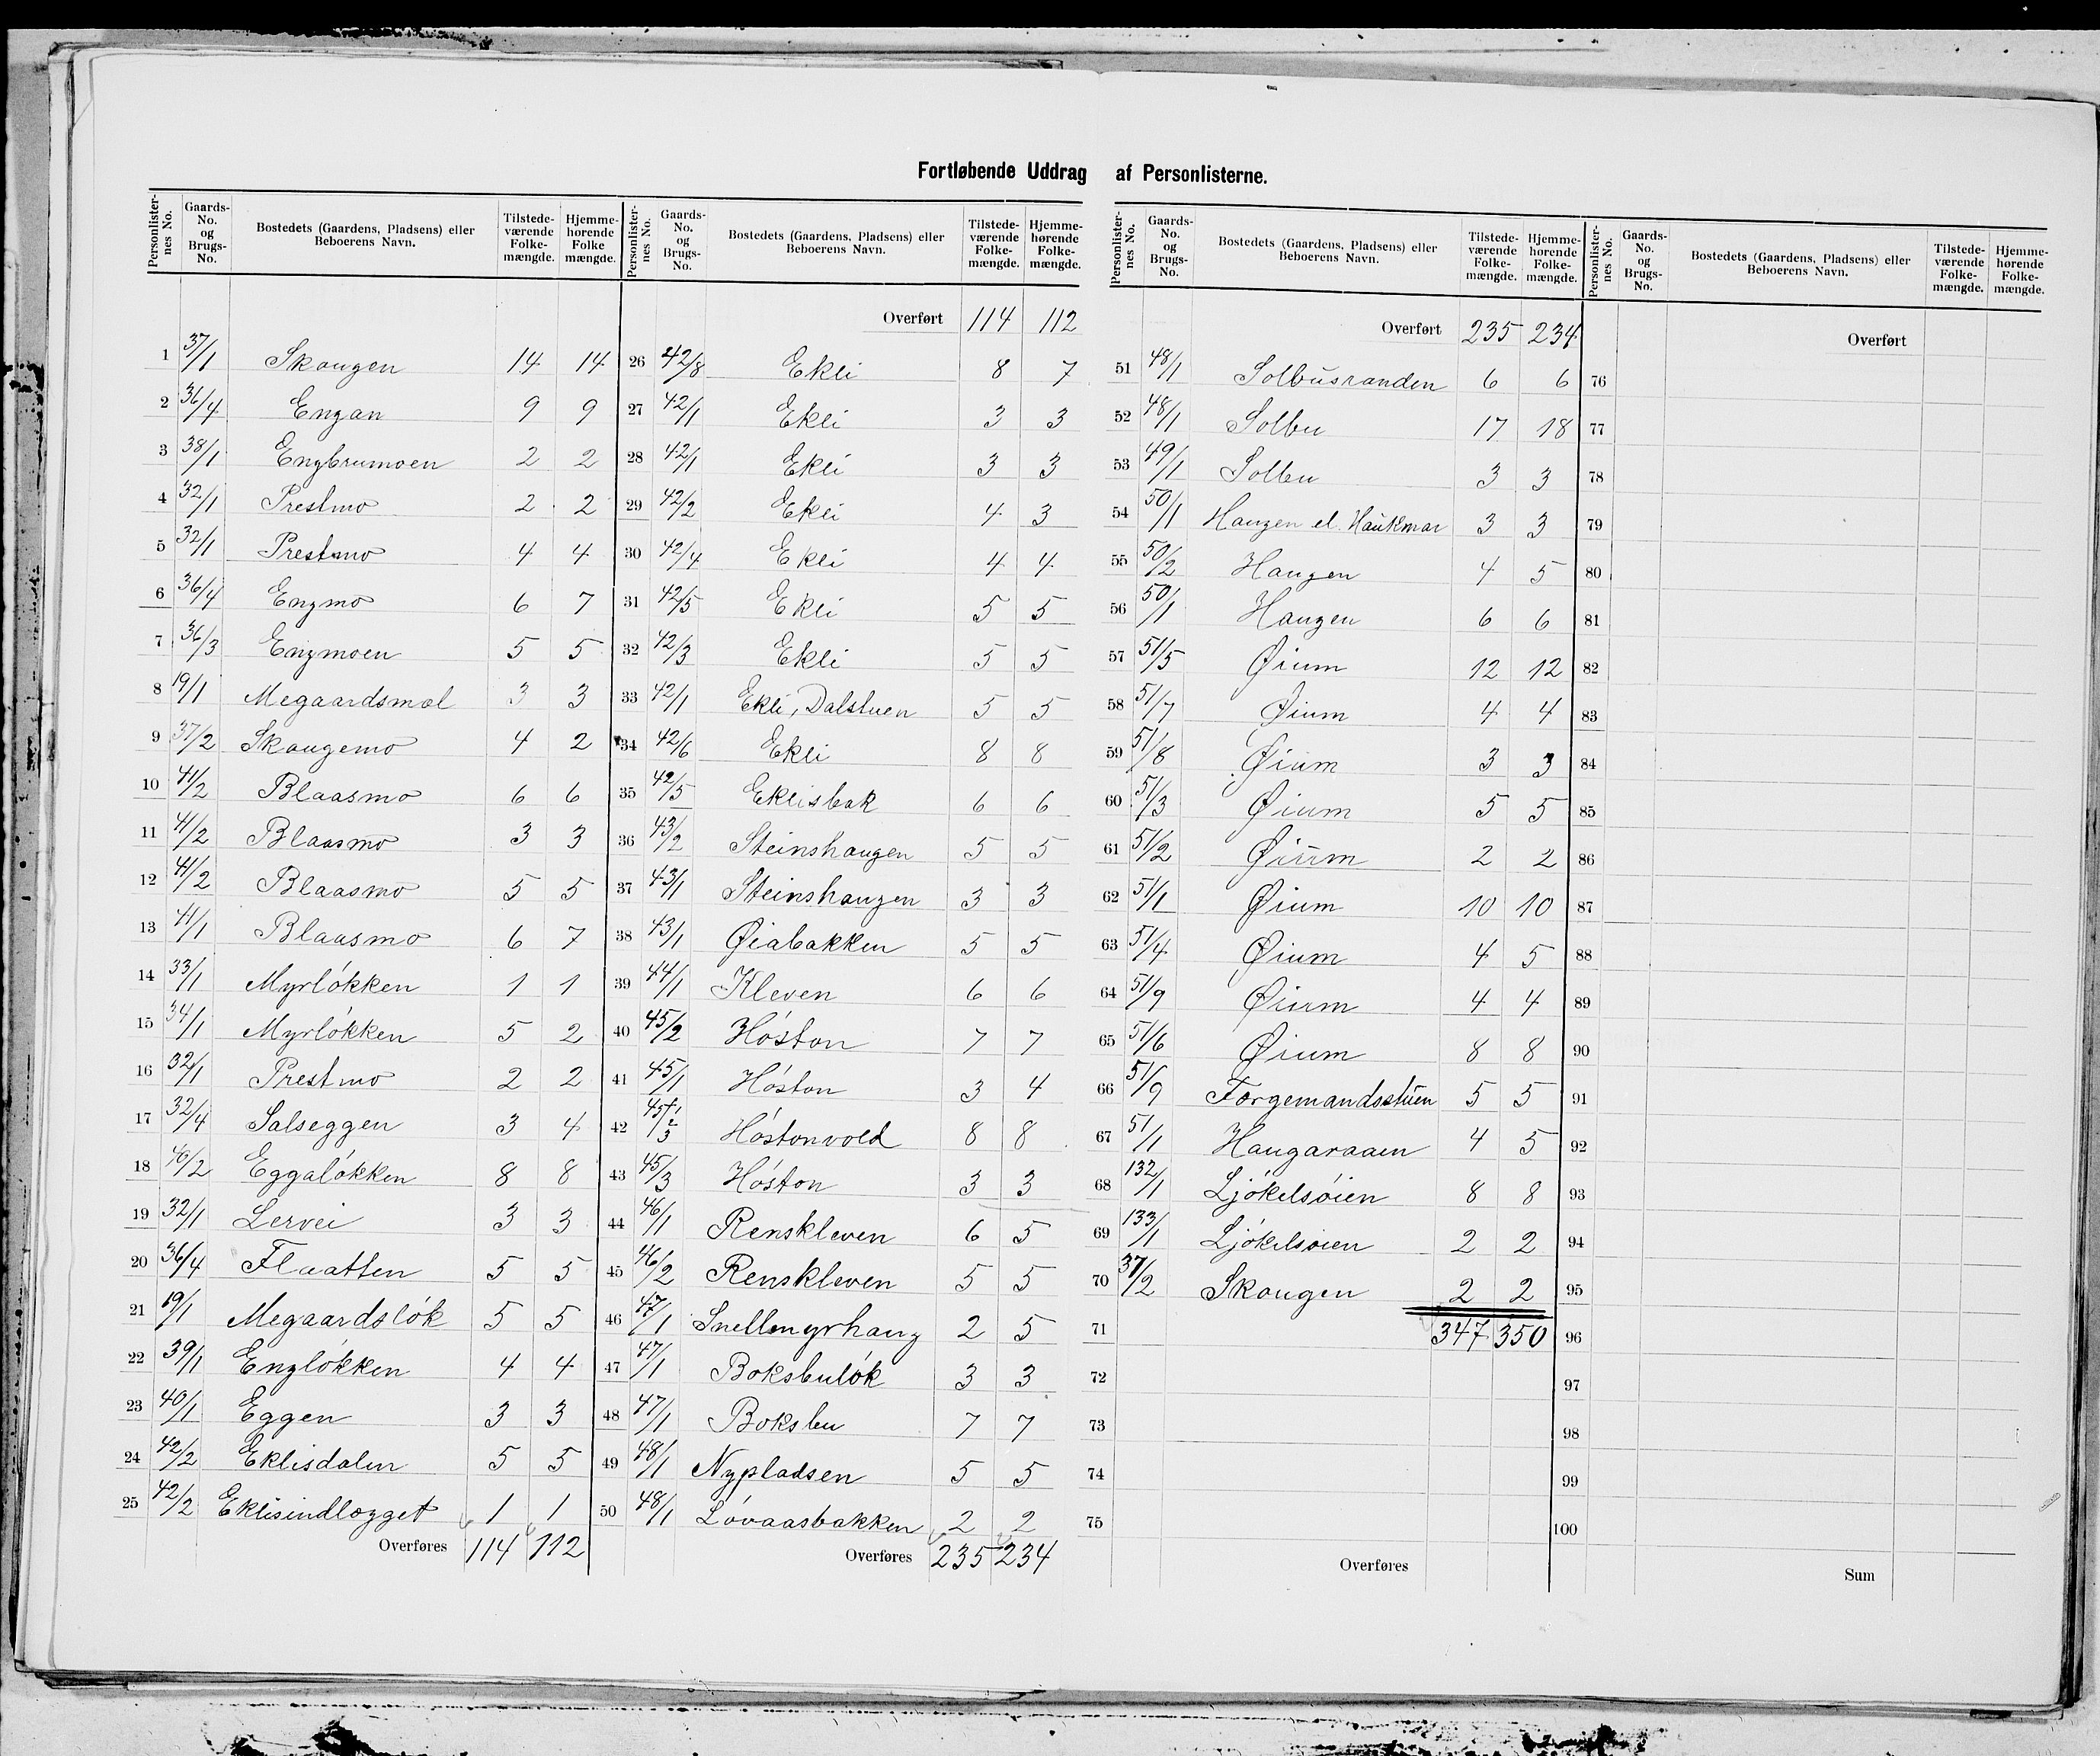 Fortløbende Uddrag af Personlisterne.
Personlisternes No. Gaards-No. og Brugs-No. Bostedets (Gaardens, Pladsens) eller Beboerens Navn. Tilstedeværende Folkemængde. Hjemmehørende Folkemængde.
1 37/1 Skougen 14 14
2 36/4 Engan 9 9
3 38/1 Engbrumoen 2 2
4 32/1 Prestmo 2 2
5 32/1 Prestmo 4 4
6 36/4 Engmo 6 7
7 36/3 Engmoen 5 5
8 19/1 Megaardsmæl 3 3
9 37/2 Skougemo 4 2
10 41/2 Blaasmo 6 6
11 41/2 Blaasmo 3 3
12 41/2 Blaasmo 5 5
13 41/1 Blaasmo 6 7
14 33/1 Myrløkken 1 1
15 34/1 Myrløkken 5 2
16 32/1 Prestmo 2 2
17 32/4 Salseggen 3 4
18 40/2 Eggaløkken 8 8
19 32/1 Lervei 3 3
20 36/4 Flaatten 5 5
21 19/1 Megaardsløk 5 5
22 39/1 Engløkken 4 4
23 40/1 Eggen 3 3
24 42/2 Eklisdalen 5 5
25 42/2 Eklisindlægget 1 1
Overføres 114 112
Personlisternes No. Gaards-No. og Brugs-No. Bostedets (Gaardens, Pladsens) eller Beboerens Navn. Tilstedeværende Folkemængde. Hjemmehørende Folkemængde.
Overført 114 112
26 42/8 Ekli 8 7
27 42/1 Ekli 3 3
28 42/1 Ekli 3 3
29 42/2 Ekli 4 3
30 42/4 Ekli 4 4
31 42/5 Ekli 5 5
32 42/3 Ekli 5 5
33 42/1 Ekli, Dalstuen 5 5
34 42/6 Ekli 8 8
35 42/5 Eklisbak 6 6
36 43/2 Steinshaugen 5 5
37 43/1 Steinshaugen 3 3
38 43/1 Øiabakken 5 5
39 44/1 Kleven 6 6
40 45/2 Høston 7 7
41 45/1 Høston 3 4
42 Høstonvold 8 8
43 45/3 Høston 3 3
44 46/1 Renskleven 6 5
45 46/2 Renskleven 5 5
46 47/1 Snellmyrhaug 2 5
47 47/1 Boksbuløk 3 3
48 47/1 Boksbu 7 7
49 48/1 Nypladsen 5 5
50 48/1 Løvaasbakken 2 2
Overføres 235 234
Personlisternes No. Gaards-No. og Brugs-No. Bostedets (Gaardens, Pladsens) eller Beboerens Navn. Tilstedeværende Folkemængde. Hjemmehørende Folkemængde.
Overført 235 234
51 48/1 Solbusranden 6 6
52 48/1 Solbu 17 18
53 49/1 Solbu 3 3
54 50/1 Haugen el. Haukmar 3 3
55 50/2 Haugen 4 5
56 50/1 Haugen 6 6
57 51/5 Øium 12 12
58 51/7 Øium 4 4
59 51/8 Øium 3 3
60 51/3 Øium 5 5
61 51/2 Øium 2 2
62 51/1 Øium 10 10
63 51/4 Øium 4 5
64 51/9 Øium 4 4
65 51/6 Øium 8 8
66 51/9 Forgemandsstuen 5 5
67 51/1 Haugaraaen 4 5
68 132/1 Ljøkelsøien 8 8
69 133/1 Ljøkelsøien 2 2
70 37/2 Skougen 2 2
71 347 350
72
73
74
75
Overføres
Personlisternes No. Gaards-No. og Brugs-No. Bostedets (Gaardens, Pladsens) eller Beboerens Navn. Tilstedeværende Folkemængde. Hjemmehørende Folkemængde.
Overført
76
77
78
79
80
81
82
83
84
85
86
87
88
89
90
91
92
93
94
95
96
97
98
99
100
Sum